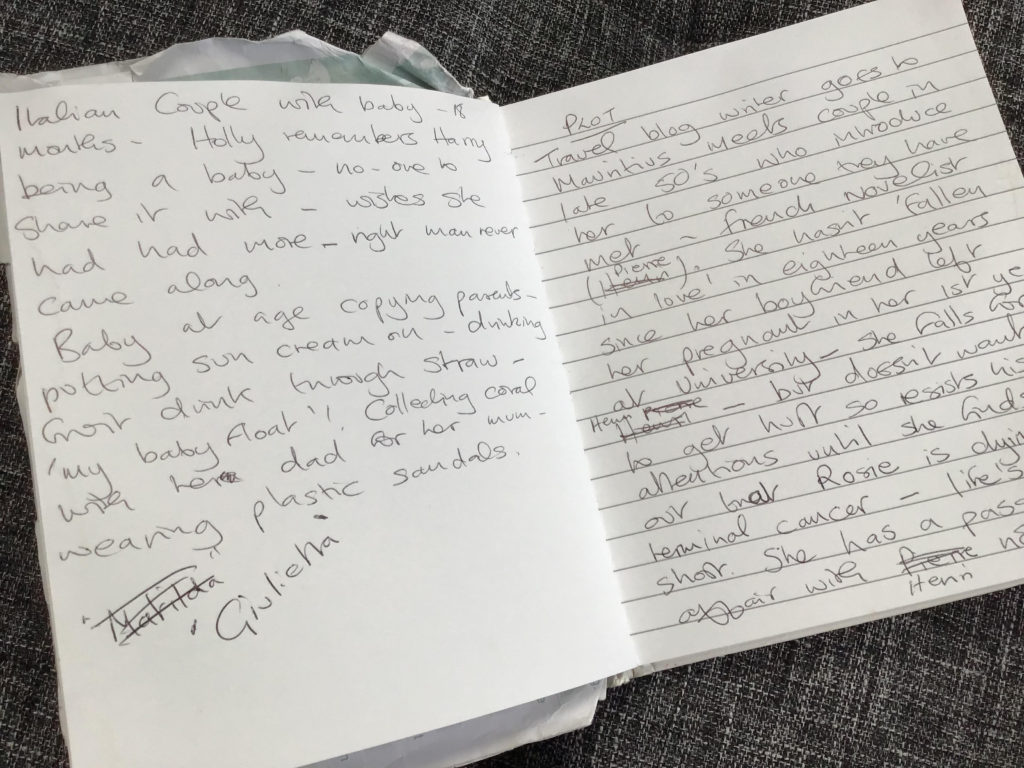 Italian Couple with baby - 18
months - Holly remembers Harry
being a baby - no-one to
share it with - wishes she
had had more - right man never
came along.
Baby at age copying parents -
putting sun cream on - drinking
fruit drink through straw -
'my baby float'! Collecting coral
with her dad for her mum -
wearing plastic sandals.
"Matilda"
'Giulietta'
PLOT
Travel blog writer goes to
Mauritius meets couple in
late 50's who introduce
her to someone they have
met - french novelist
Pierre
(Henri). She hasn't 'fallen
in love' in eighteen years
since her boyfriend left
her pregnant in her 1st ye
at University - she falls for
Henri Pierre
Henri - but doesn't want
to get hurt so resists his
attentions until she finds
out that Rosie is dying
terminal cancer - life's
short. She has a pass
affair with Pierre
Henri